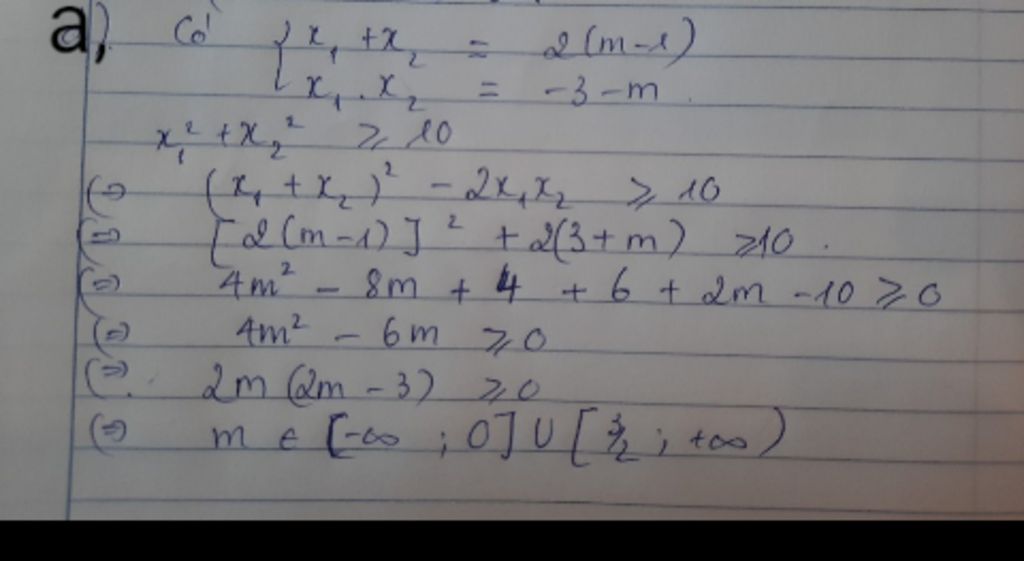 a) Có { x₁ + x₂ = 2(m-1)
x₁ . x₂ = -3-m
x₁² + x₂² ⩾ 10
(=) (x₁ + x₂)² - 2x₁x₂ ⩾ 10
(=) [2(m-1)]² + 2(3+m) ⩾10.
(=) 4m² - 8m + 4 + 6 + 2m -10 ⩾ 0
(=) 4m² - 6m ⩾ 0
(=). 2m (2m - 3) ⩾ 0
(=) m ∈ [-∞ ; 0] U [3/2 ; +∞)